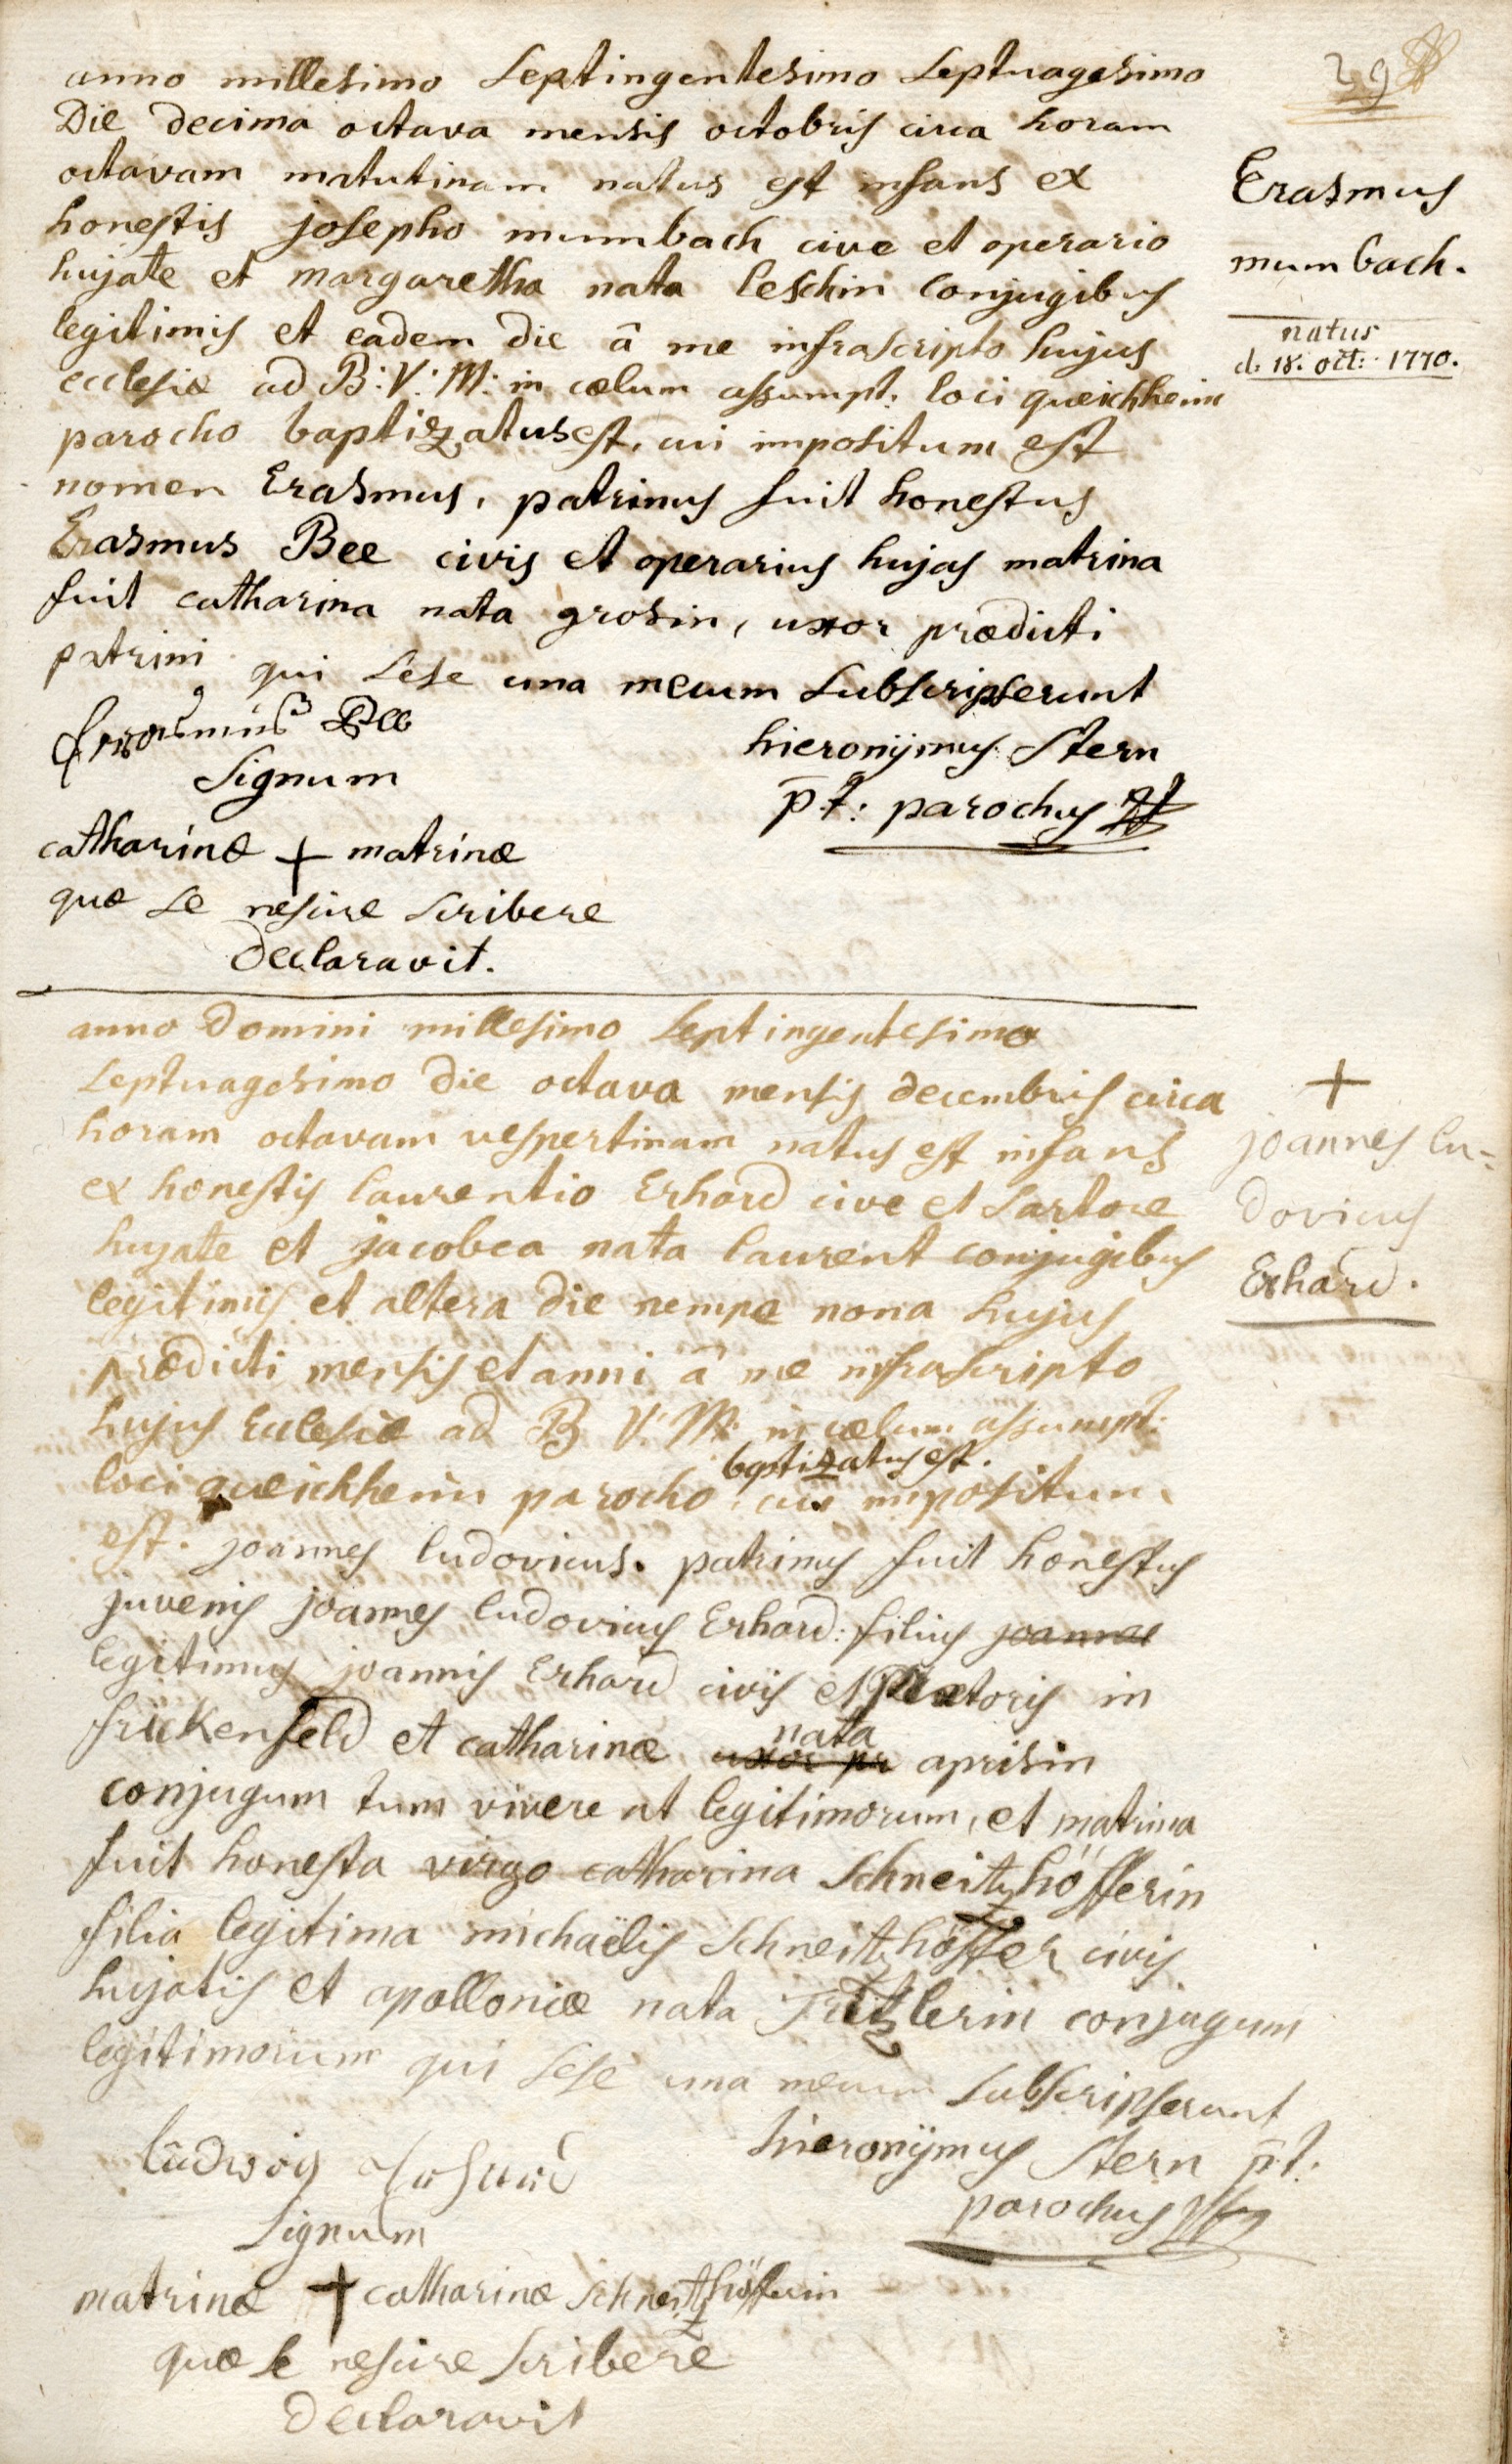 29
anno millesimo septingentesimo septuagesimo
Die decima octava mensis octobris circa horam
octavam matutinam natus est infans ex
honestis josepho mumbach cive et operario
hujate et margaretha nata leschin conjugibus
legitimis et eadem die â me infrascripto hujus
ecclesiæ ad B: V: M: in cælum assumpt: loci queichheim
parocho baptizatus est, cui impositum est
nomen Erasmus, patrinus fuit honestus
Erasmus Bee civis et operarius hujas matrina
fuit catharina nata grosin, uxor prædicti
patrini qui sese una mecum subscripserunt
Erasmus Bee
hieronÿmus Stern
signum
p.t: parochus
catharinæ + matrinæ
quæ se nescire scribere
declaravit.
Erasmus
mumbach.
natus
d. 18. oct: 1770.
anno Domini millesimo septingentesimo
septuagesimo die octava mensis decembris circa
horam octavam vespertinam natus est infans
ex honestis laurentio Erhard cive et sartore
hujate et jacobea nata laurent conjugibus
legitimis et altera die nempe nona hujus
prædicti mensis et anni â me infrascripto
hujus Ecclesiæ ad B V: M: in cælum assumpt:
baptizatus est.
loci queichheim parocho, cui impositum
est. joannes ludovicus. patrinus fuit honestus
juvenis joannes ludovicus Erhard: filius joannes
legitimus joannis Erhard civis et prætoris in
frickenfeld et catharinæ uxor pr nata aprisin
conjugum tum vivere at legitimorum, et matrina
fuit honesta virgo catharina Schneitzhöfferin
filia legitima michaëlis Schneitzhöffer civis
hujatis et apolloniæ nata conjugum
legitimorum qui sese una mecum subscripserunt
ludwig Erhard
hieronÿmus Stern p.t:
signum
parochus
matrinæ + catharinæ Schneitzhöfferin
quæ se nescire scribere
declaravit
+
joannes lu=
dovicus
Erhard.